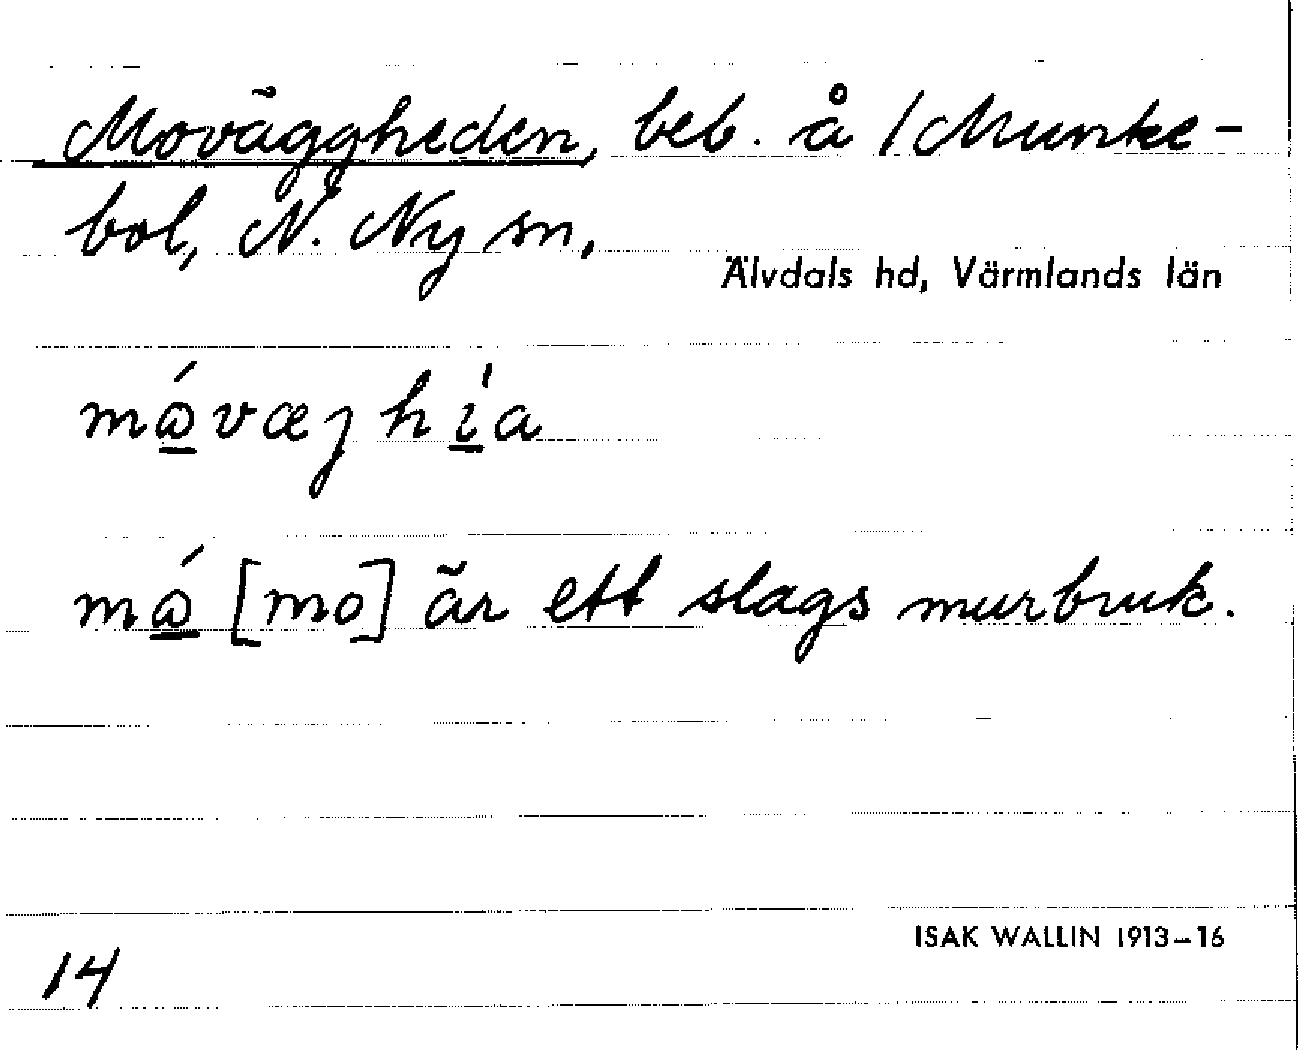 Moväggheden, beb. å /Munke-
bol, N. Ny sn,
Älvdals hd, Värmlands län
mώ̱væȷhí̱a
mώ̱ [mo] är ett slags murbruk.
ISAK WALLIN 1913–16
14